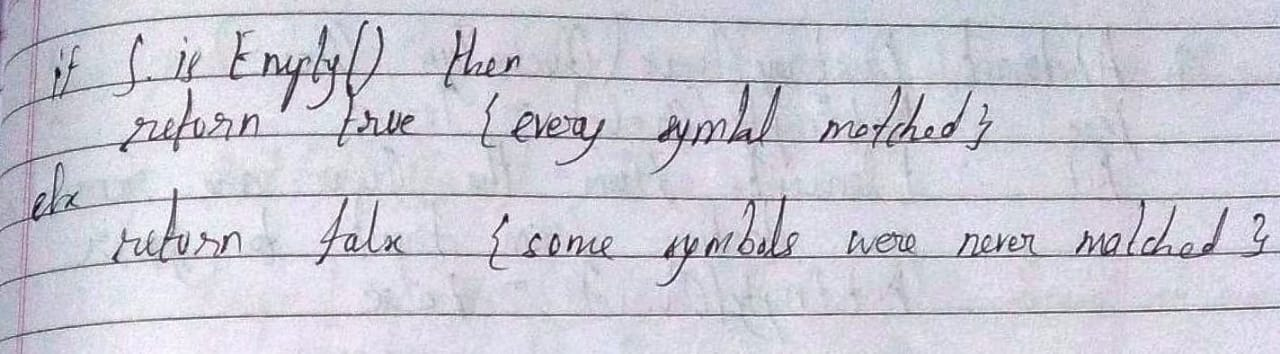 if S. is Empty() then
return true {every symbol matched}
else
return false {some symbols were never matched}